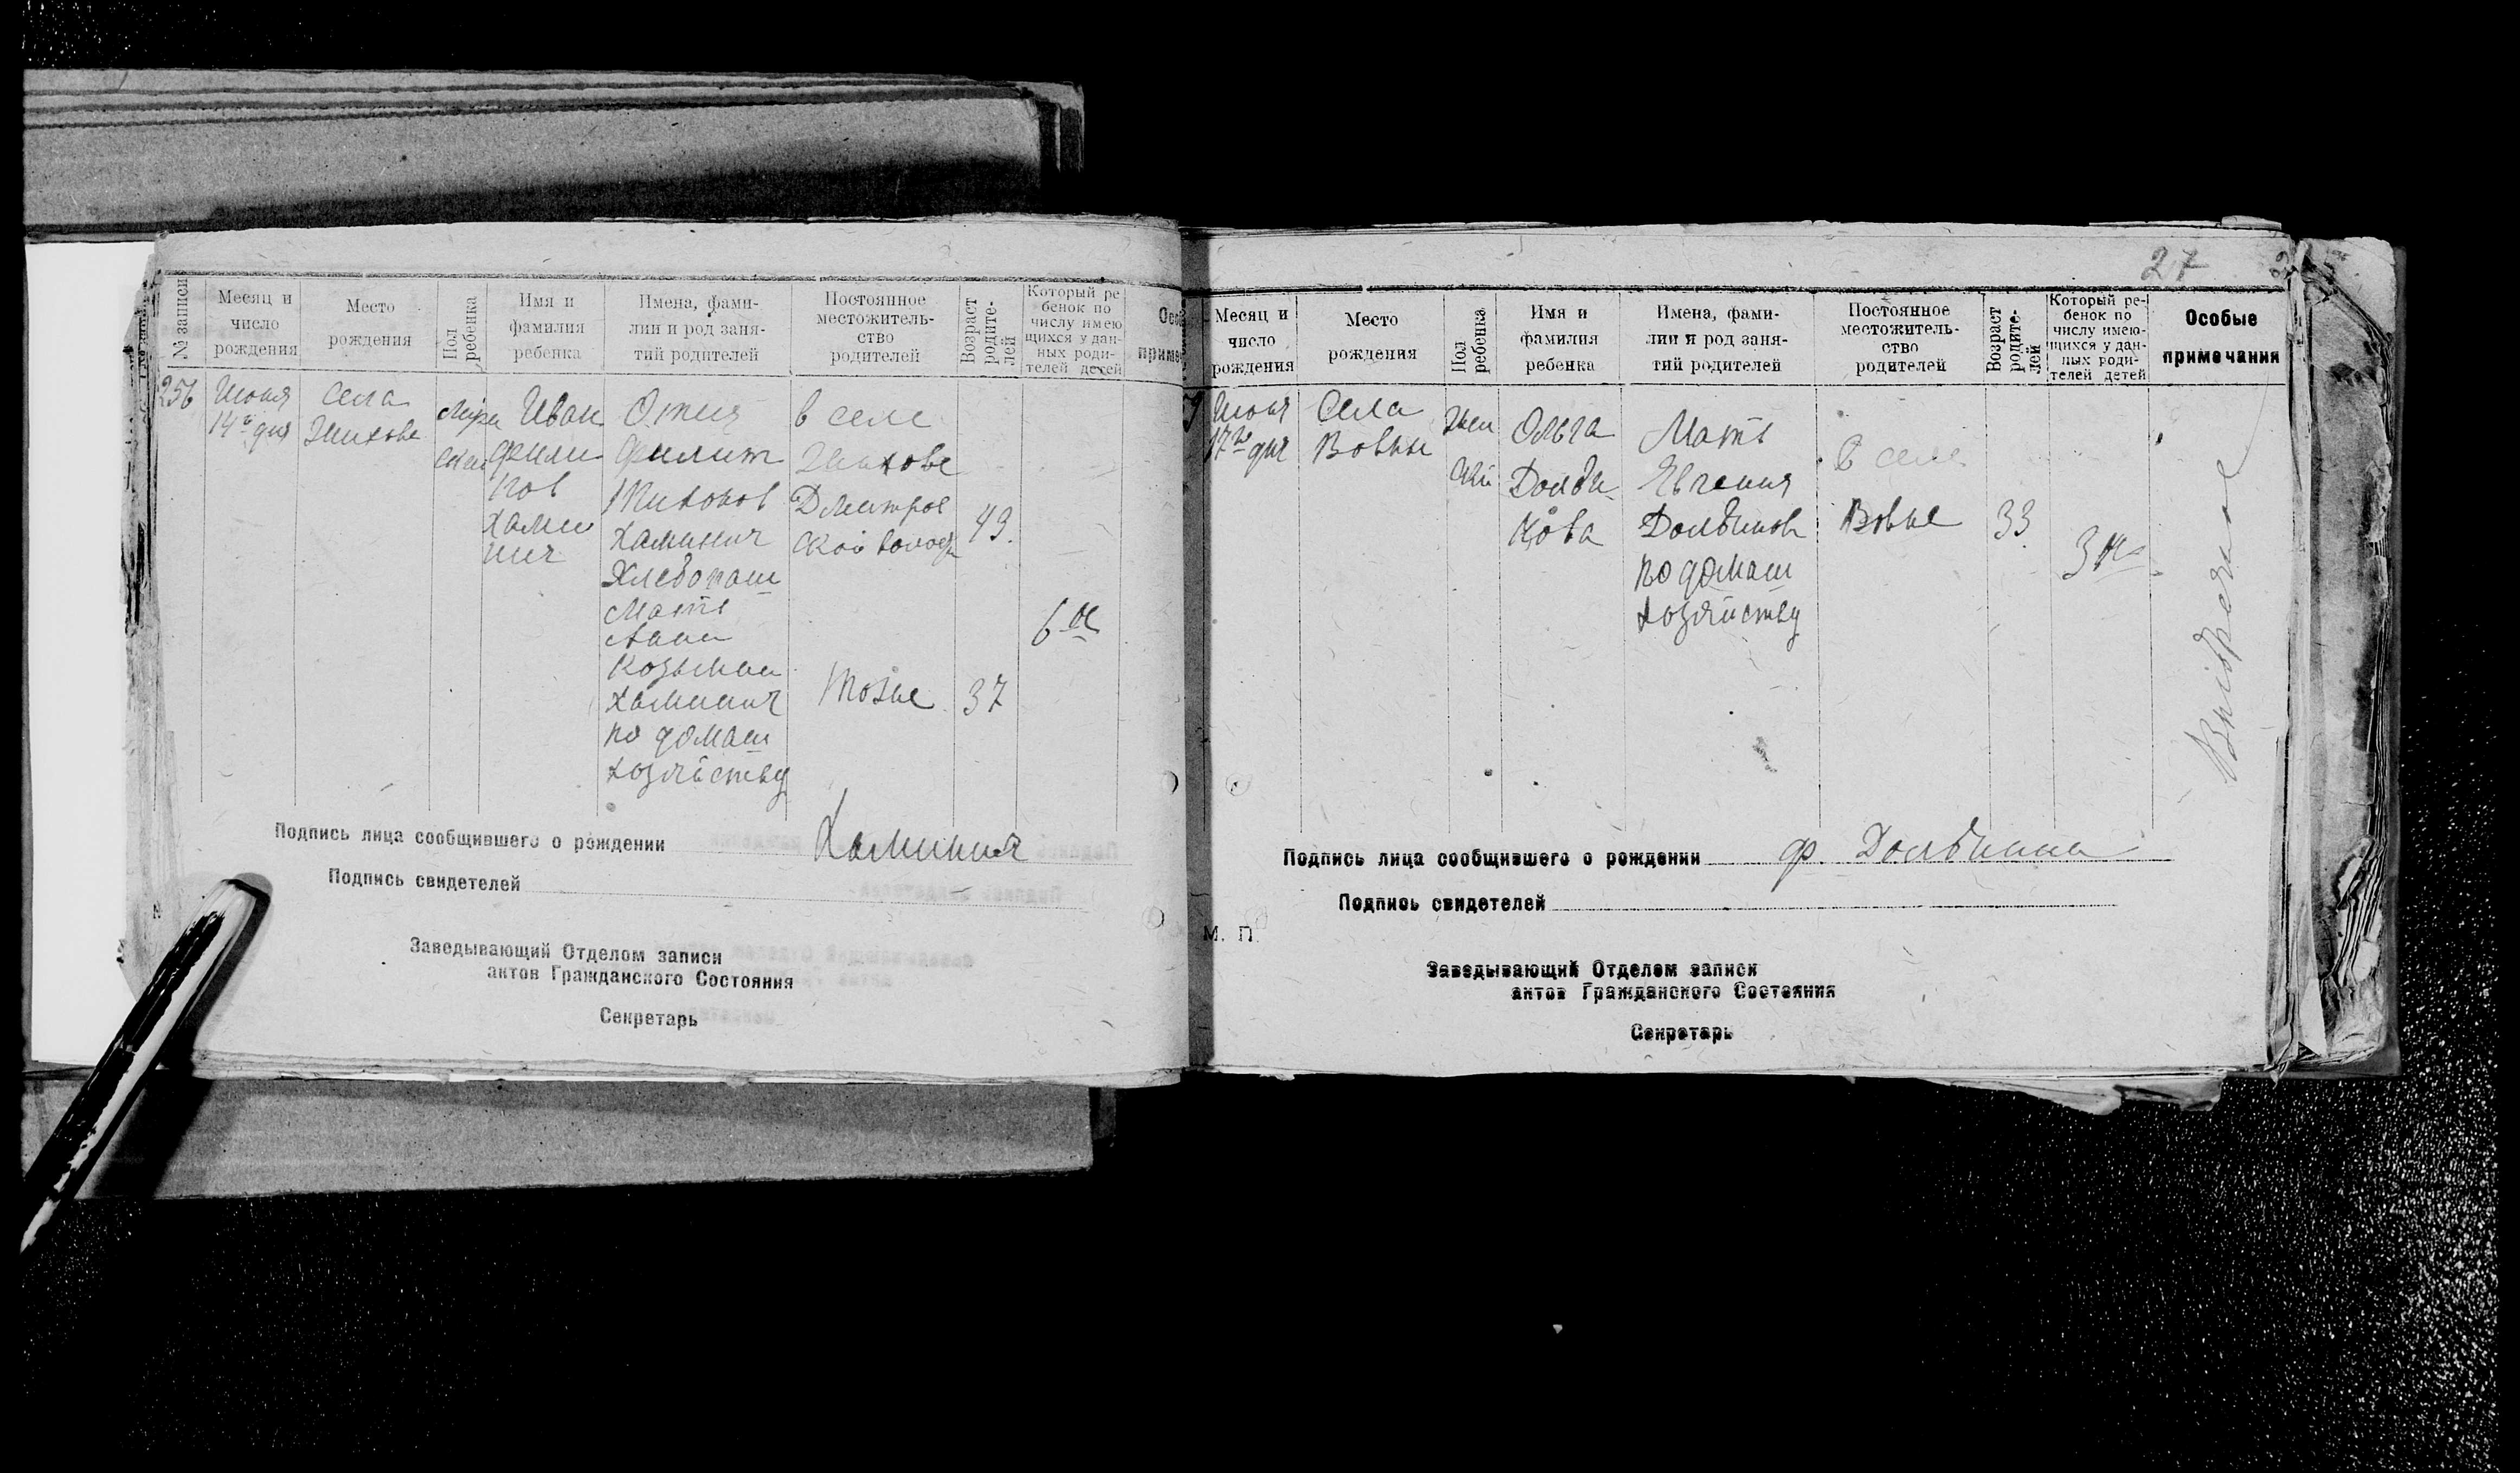 № записи
Месяц и
число
рождения
Место
рождения
Пол
ребенка
Имя и
фамилия
ребенка
Имена, фами-
лии и род заня-
тий родителей
Постоянное
местожитель-
ство
родителей
Возраст
родите-
лей
Который ре
бенок по
числу имею
щихся у дан-
ных роди-
телей детей
256
Июня
14го дня
села
Отец
Иван
Фили
пов
Хами
нич
Филип
Тихонов
Хаминич
Хлебопаш
Мать
Анна
Козьмин
Хаминич
по домаш
хозяйству
в селе
Дмитров
ской волости
Тоже
43.
37
6й
Подпись лица сообщившего о рождении Хаминич
Подпись свидетелей
Заведывающий Отделом записи
актов Гражданского Состояния
Секретарь
27
Месяц и
число
рождения
Место
рождения
Пол
ребенка
Имя и
фамилия
ребенка
Имена, фами-
лии и род заня-
тий родителей
Постоянное
местожитель-
ство
родителей
Возраст
родите-
лей
Который ре-
бенок по
числу имею-
щихся у дан-
ных роди-
телей детей
Особые
примечания
Июня
17го дня
Села
Вовны
Жен
ский
Ольга
Долби
нова
Мать
Евгения
Долбинов
по домаш
хозяйству
В селе
Вовне
33
3й
Внебрачное
Подпись лица сообщившего о рождении Ф. Долбина
Подпись свидетелей
М. П.
Заведывающий Отделом записи
актов Гражданского Состояния
Секретарь